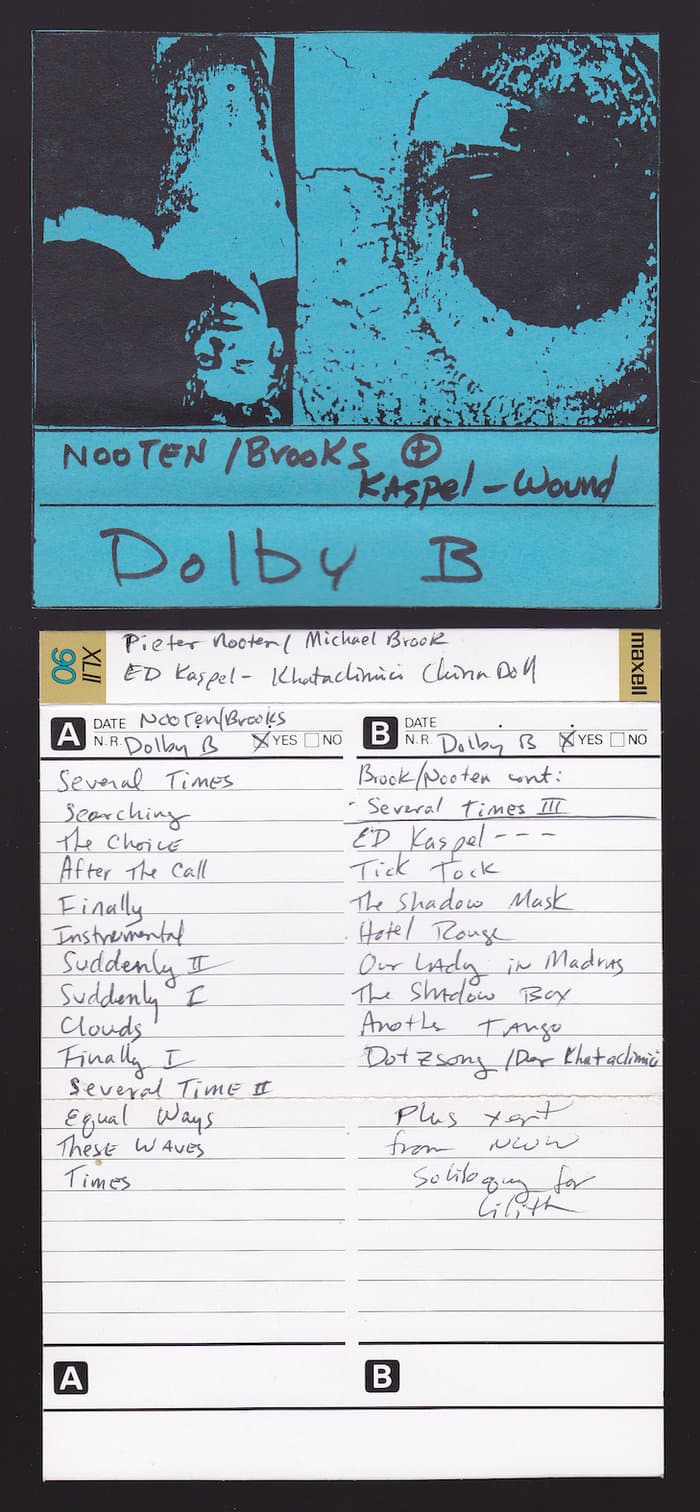 NOOTEN / BrooKs ⊕
Kaspel - Wound
Dolby B
XLII 90
Pieter Nooten / Michael Brook
ED Kaspel - Khataclimici China Doll
maxell
A DATE Nooten/Brooks
N.R. Dolby B YES NO
Several Times
Searching
The Choice
After The Call
Finally
Instrumental
Suddenly II
Suddenly I
Clouds
Finally I
Several Time II
Equal Ways
These Waves
Times
B DATE
N.R. Dolby B YES NO
Brook/Nooten cont:
Several Times III
ED Kaspel - - -
Tick Tock
The Shadow Mask
Hotel Rouge
Our Lady in Madras
The Shadow Box
Anothe Tango
Dotzsong / Der Khataclimici
Plus
from NWW
Soliloquy for
Lilith
A
B